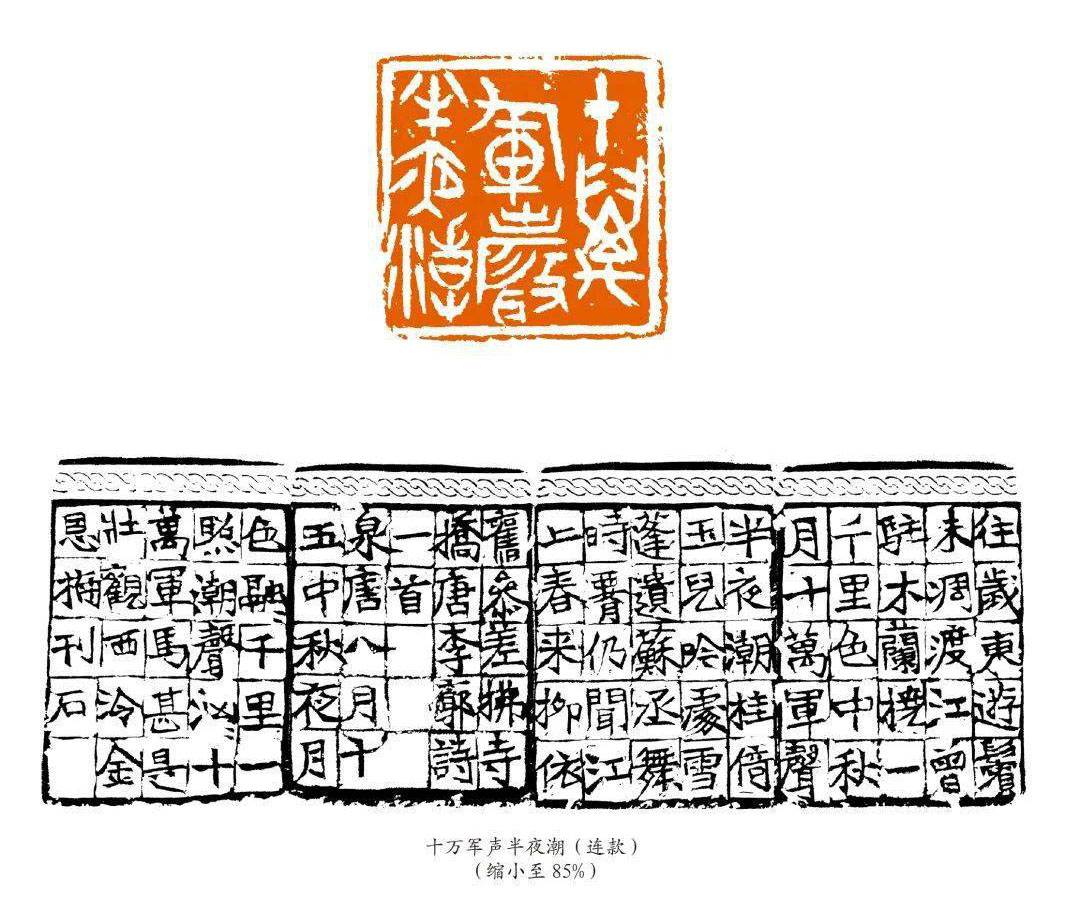 十萬
軍聲
半夜潮
往歲東遊鬢
未凋渡江曾
駐木蘭橈一
千里色中秋
月十萬軍聲
半夜潮桂倚
玉兒吟處雪
蓬遺蘇丞舞
時仍聞江
上春来柳依
舊叅差拂寺
橋唐李廓詩
一首
泉唐八月十
五中秋夜月
色融千里一
照潮聲洶十
萬軍馬甚是
壯觀西泠金
恩楠刊石
十万军声半夜潮（连款）
（缩小至 85%）